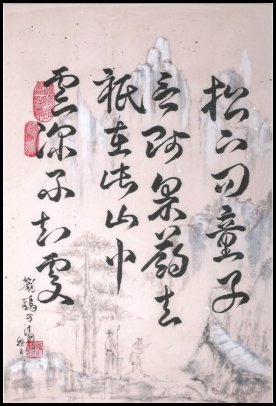 松下問童子
言師采葯去
祗在此山中
雲深不知處